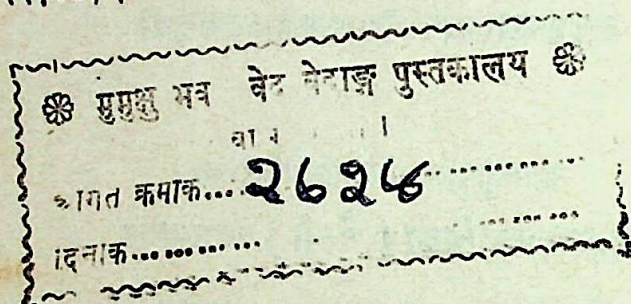 ❀ मुमुक्षु भव वेद वेदाङ्ग पुस्तकालय ❀
आगत क्रमाक...
दिनाक............